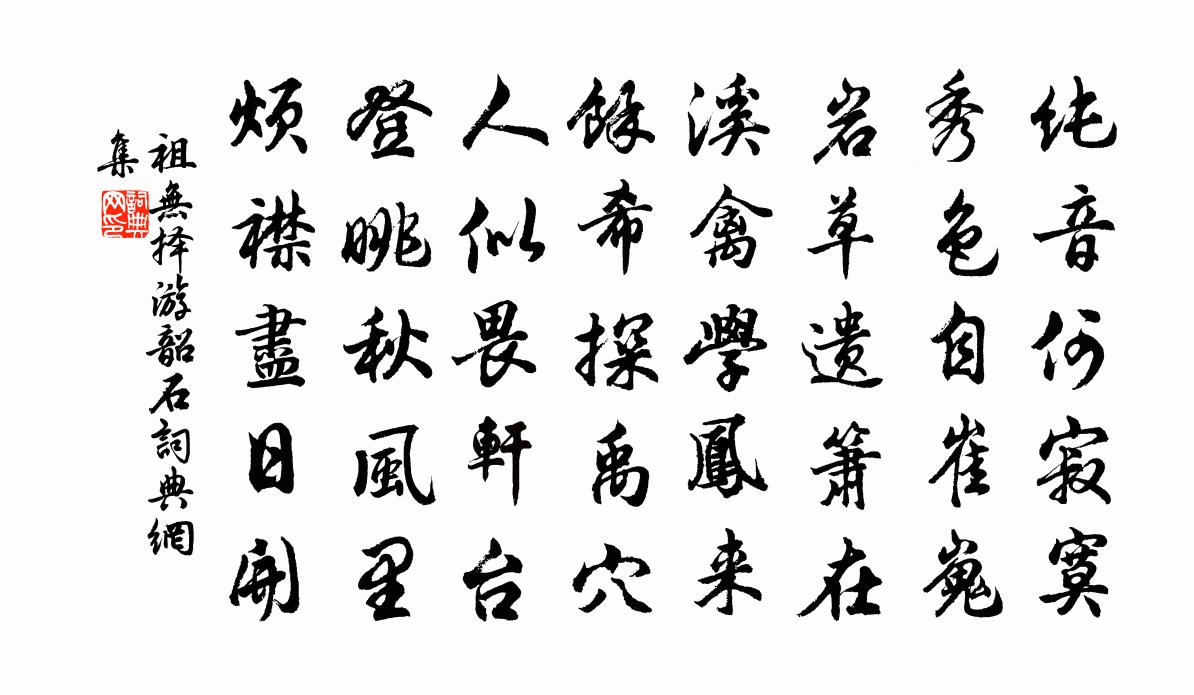 纯音何寂寞
秀色自崔嵬
岩草遗簫在
溪禽學鳳来
餘希探禹穴
人似畏軒台
登眺秋風里
烦襟盡日開
祖無择游韶石詞典網
集
詞典网印